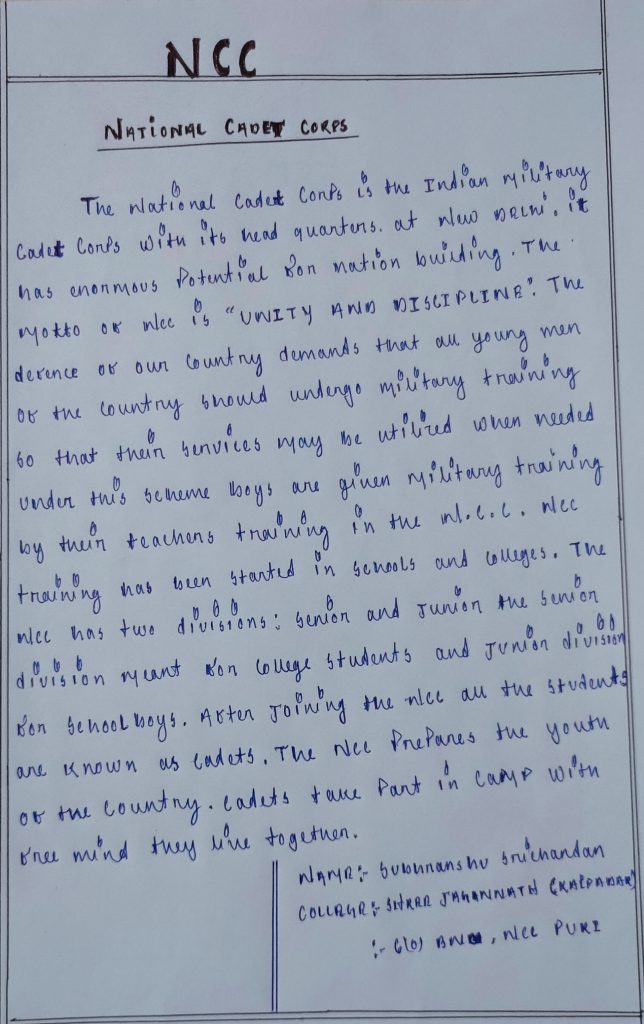 NCC
NATIONAL CADET CORPS
The National Cadet Corps is the Indian military
Cadet Corps with its head quarters. at New DELHI. it
has enormous Potential for nation building. The
motto of NCC is "UNITY AND DISCIPLINE". The
defence of our country demands that all young men
of the country should undergo military training
so that their services may be utilized when needed
under this scheme boys are given military training
by their teachers training in the N.C.C. NCC
training has been started in schools and colleges. The
NCC has two divisions: senior and junior the senior
division meant for college students and Junior division
for school boys. After Joining the NCC all the students
are known as cadets. The NCC Prepares the youth
of the country. cadets take Part in camp with
free mind they live together.
NAME:- Subhranshu Srichandan
COLLEGE:- SHREE JAGANNATH
:- 6(O) BN, NCC PURI